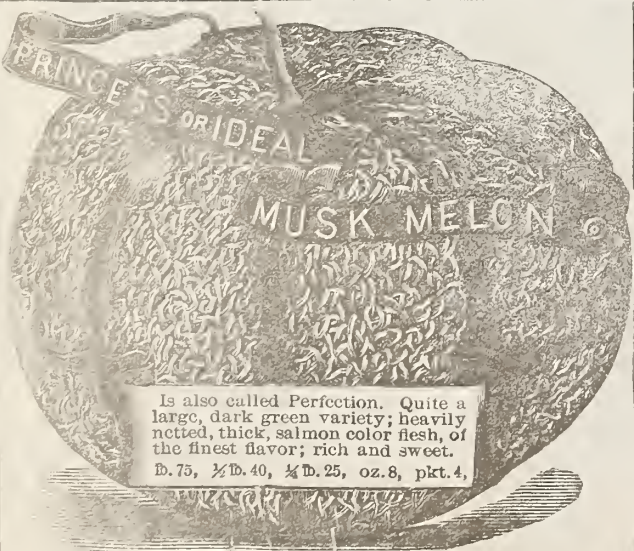 PRINCESS OR IDEAL
MUSK MELON
Is also called Perfection. Quite a
large, dark green variety; heavily
netted, thick, salmon color flesh, of
the finest flavor; rich and sweet.
lb. 75, ½ lb. 40, ¼ lb. 25, oz. 8, pkt. 4,